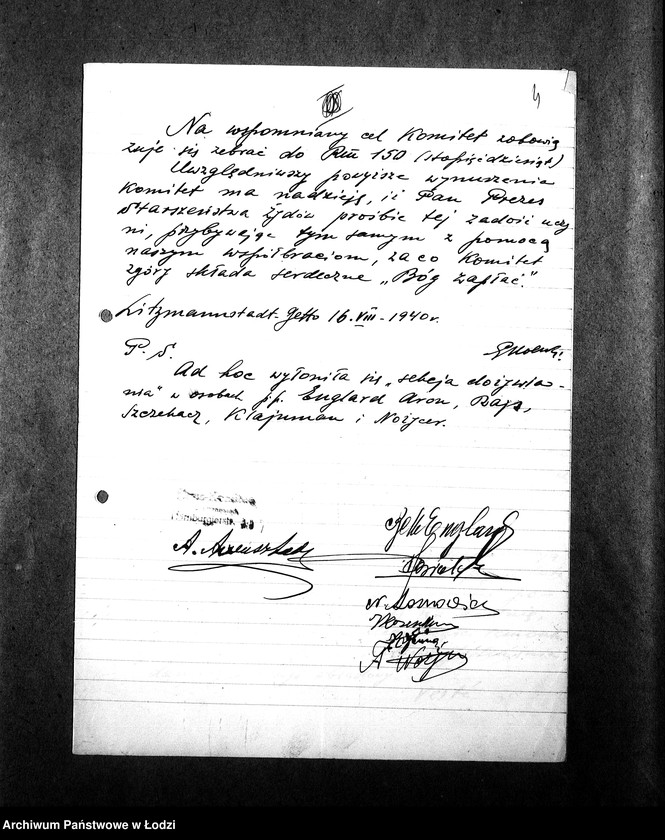 4
Na wspomniany cel Komitet zobowią
zuje się zebrać do Rm 150 (stopięćdziesiąt)
Uwzględniwszy powyższe wynurzenia
Komitet ma nadzieję, iż Pan Prezes
Starszeństwa Żydów prośbie tej zadość uczy
ni, przybywając tym samym z pomocą
naszym współbraciom, za co Komitet
zgóry składa serdeczne „Bóg zapłać."
Litzmannstadt-Getto 16.VIII-1940r.
P. S.
Ad hoc wyłoniła się „sekcja dożywia-
nia" w osobach p.p. Englard Aron, Rajs,
Szczekacz, Klajnman i Nożycer.
Hamburgerstr.
A.
Archiwum Państwowe w Łodzi